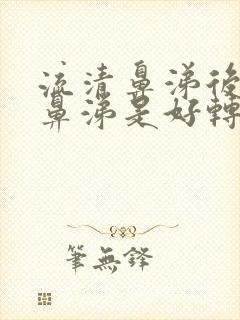 流清鼻涕後
鼻涕是好轉
筆無鋒